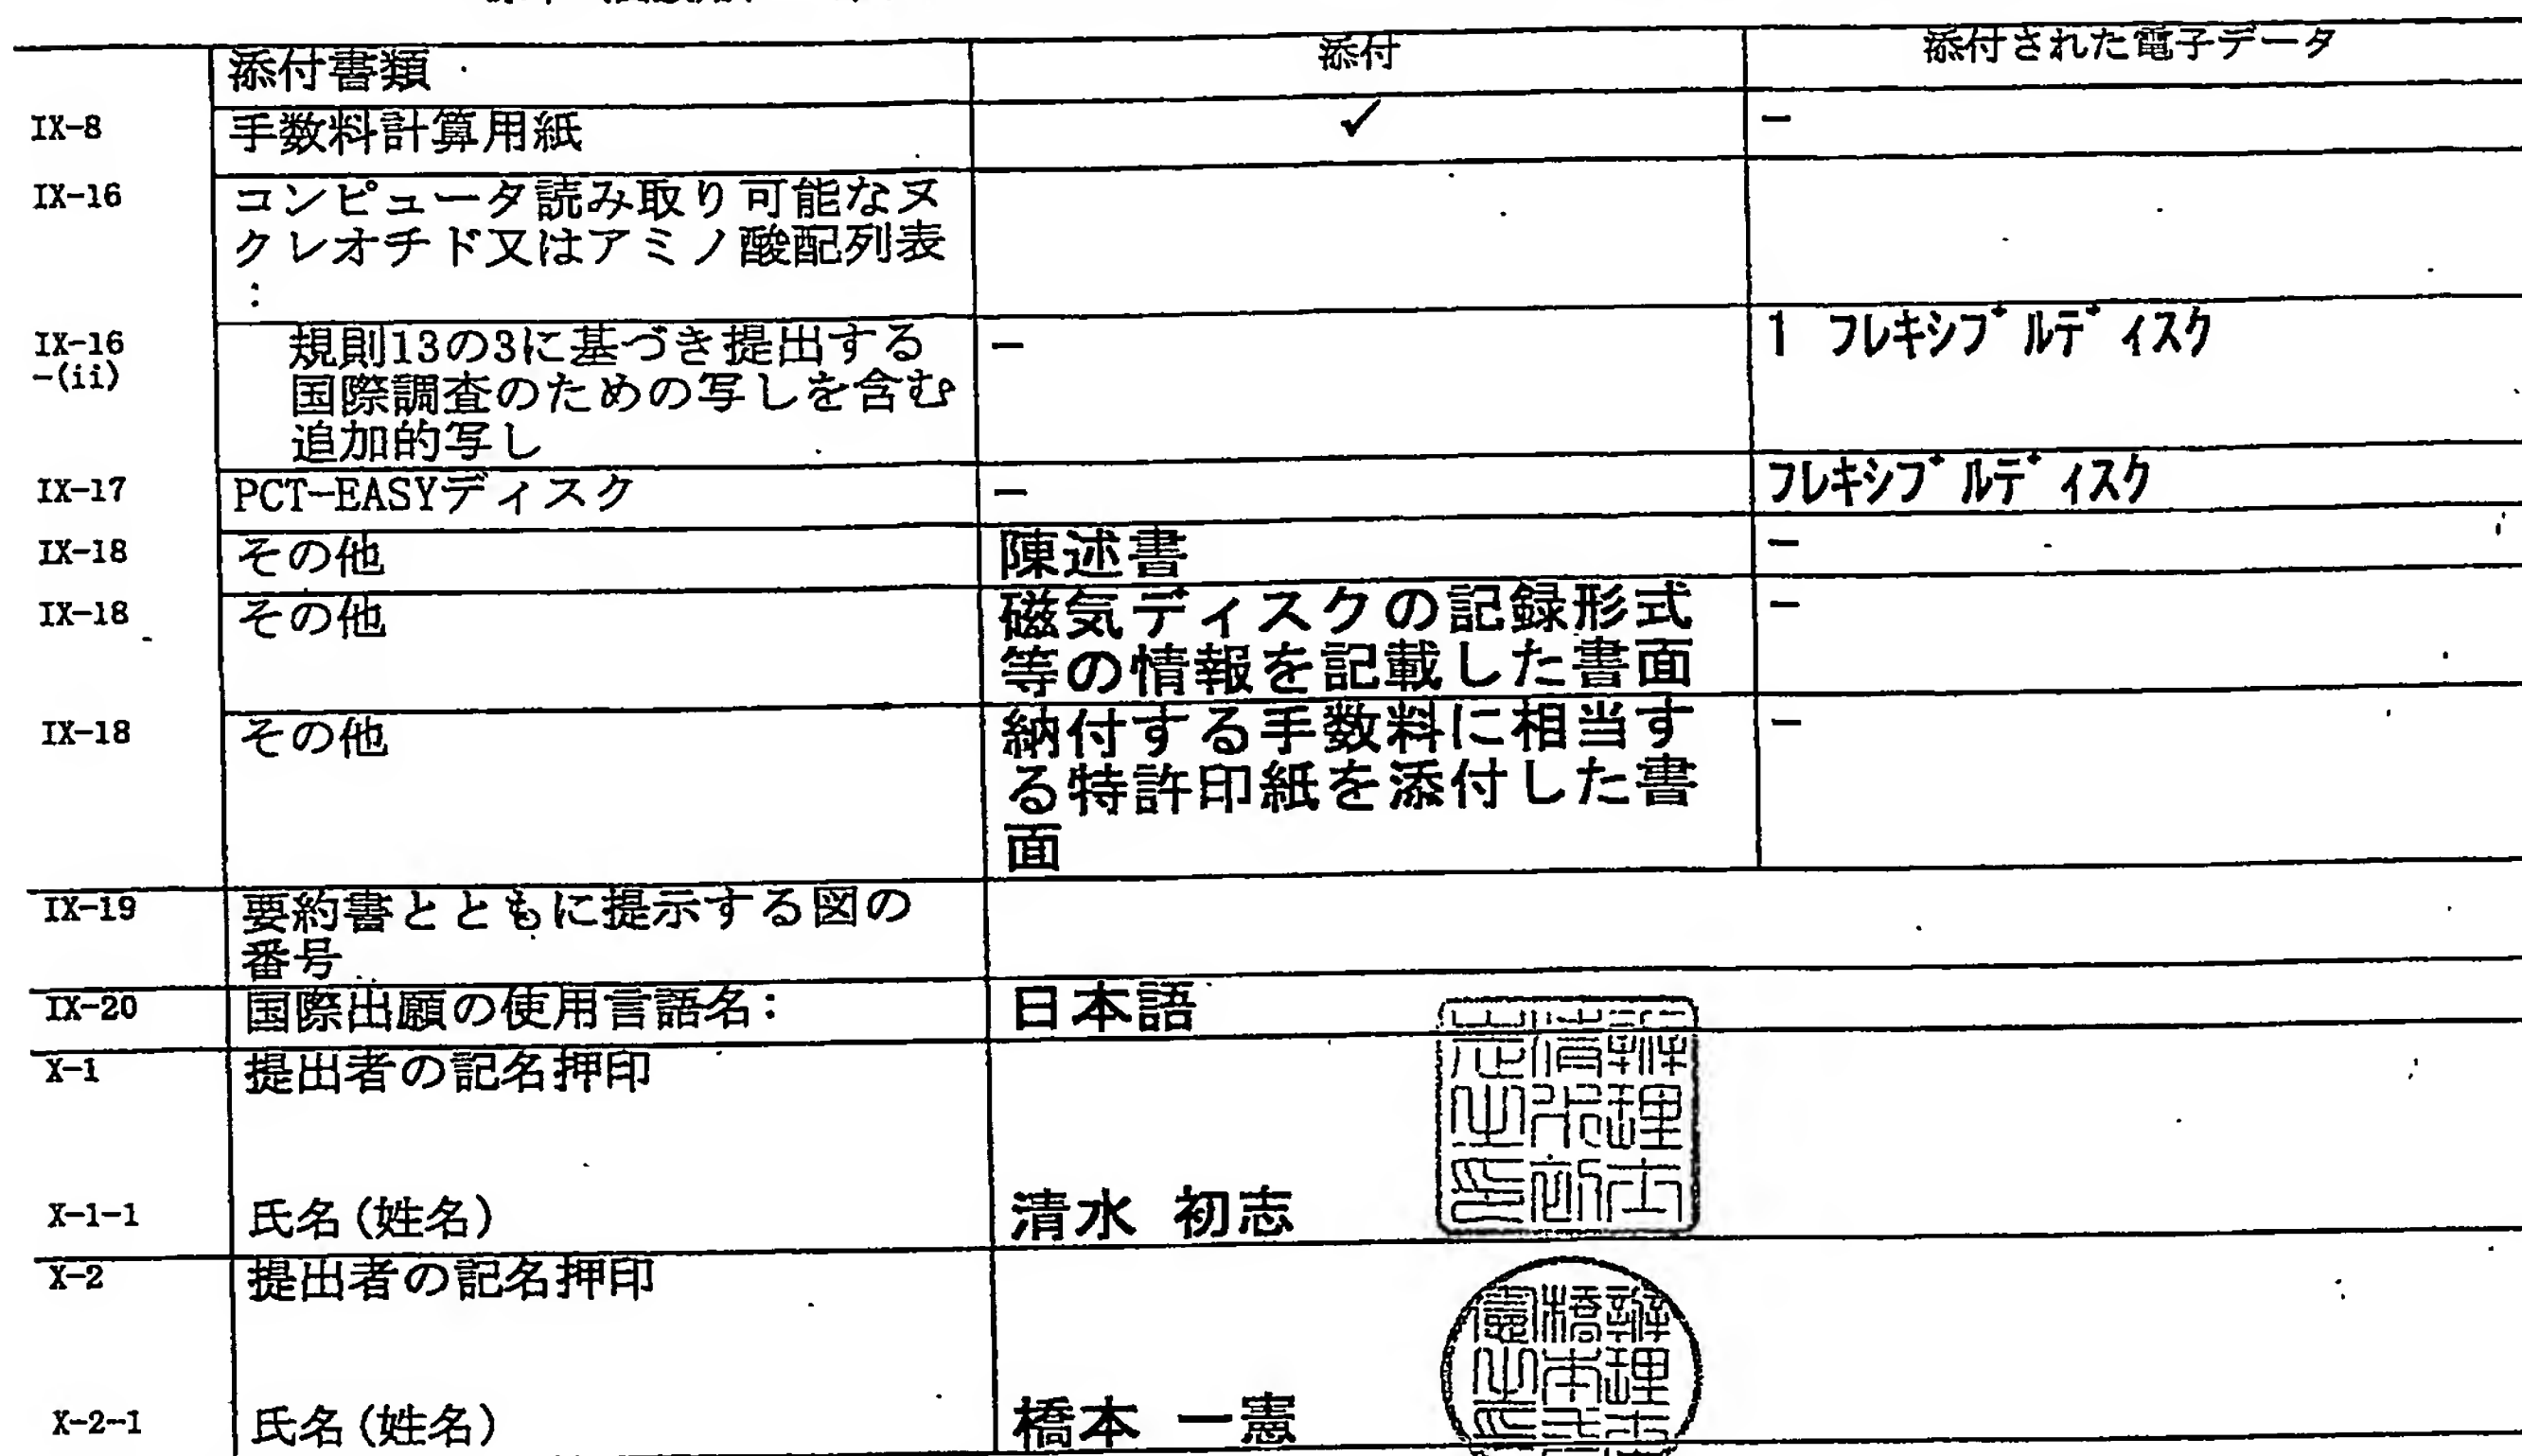 添付書類 添付 添付された電子データ
IX-8 手数料計算用紙 ✓ −
IX-16 コンピュータ読み取り可能なヌ
クレオチド又はアミノ酸配列表
:
IX-16 規則13の3に基づき提出する − 1 フレキシブルディスク
-(ii) 国際調査のための写しを含む
追加的写し
IX-17 PCT-EASYディスク − フレキシブルディスク
IX-18 その他 陳述書 −
IX-18 その他 磁気ディスクの記録形式 −
等の情報を記載した書面
IX-18 その他 納付する手数料に相当す −
る特許印紙を添付した書
面
IX-19 要約書とともに提示する図の
番号
IX-20 国際出願の使用言語名: 日本語
X-1 提出者の記名押印
X-1-1 氏名(姓名) 清水 初志
X-2 提出者の記名押印
X-2-1 氏名(姓名) 橋本 一憲